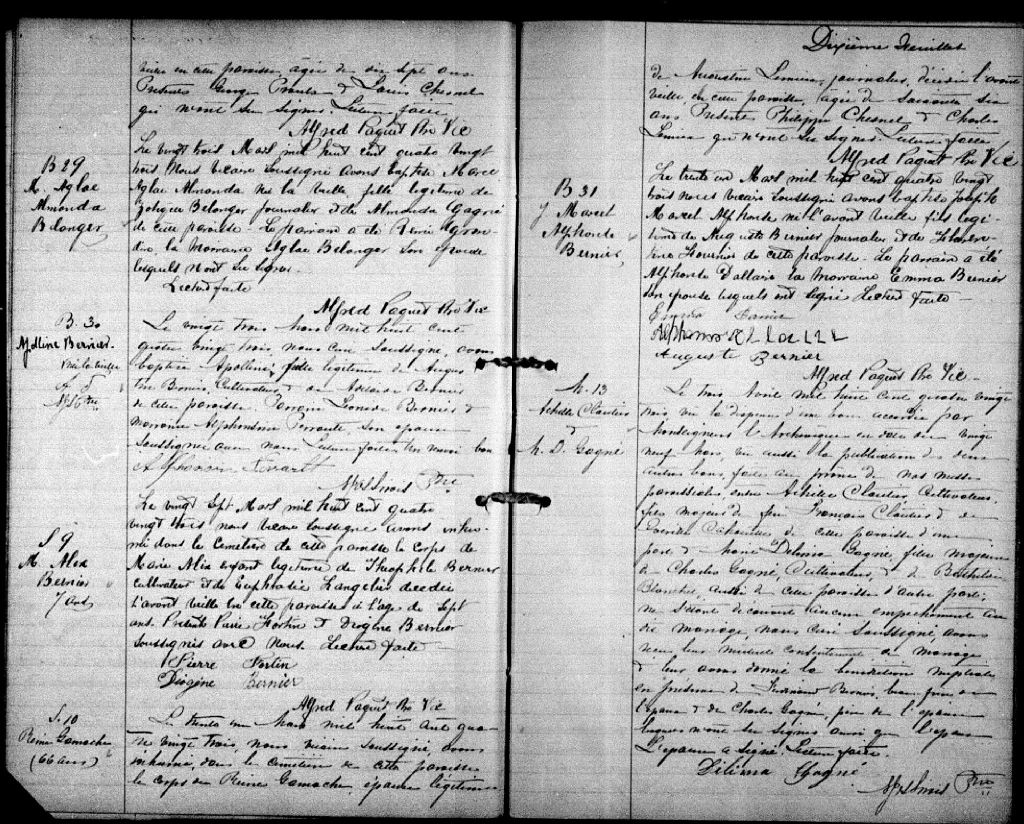 veille en cette paroisse, agée de dix sept ans
Présents George & Louis Chesnel
qui n'ont su signer. Lecture faite
Alfred Paquet Ptre Vic
B 29
M. Aglae
Almonda
Belanger
Le vingt trois Mars mil huit cent quatre vingt
trois Nous vicaire soussigné avons baptisé Marie
Aglae Almonda née la veille fille legitime de
Belanger journalier et de Almonda Gagné
de cette paroisse. Le parrain a été
la Marraine Aglae Belanger son épouse
lesquels n'ont su signer.
Lecture faite
Alfred Paquet Ptre Vic
B. 30
Bernier.
née la veille
Le vingt trois Mars mil huit cent
quatre vingt trois, nous curé soussigné, avons
baptisé Apolline, fille legitime de Augus
tin Bernier, Cultivateur & de Bernier
de cette paroisse. Parrain Bernier &
Marraine Alphonsine son épouse
soussignée avec nous. Lecture faite
S 9
M. Alix
Bernier
7 ans
Le vingt sept Mars mil huit cent quatre
vingt trois nous vicaire soussigné avons inhu-
mé dans le Cimetière de cette paroisse le corps de
Marie Alix enfant legitime de Theophile Bernier
cultivateur et de Euphrasie Langelier decedée
l'avant veille en cette paroisse à l'age de sept
ans. Présents Pierre Fortin & Diogène Bernier
soussignés avec Nous. Lecture faite
Pierre Fortin
Diogène Bernier
Alfred Paquet Ptre Vic
S. 10
Reine Gamache
(66 ans)
Le trente un Mars mil huit cent qua-
tre vingt trois, nous vicaire soussigné, avons
inhumé, dans le cimetière de cette paroisse
le corps de Reine Gamache, épouse légitime
Dixième Feuillet
de Augustin Lemieux, journalier, décédée l'avant
veille en cette paroisse, agée de soixante six
ans Présents Philippe Chesnel & Charles
Lemieux qui n'ont su signer. Lecture faite
Alfred Paquet Ptre Vic
B 31
J Marcel
Alphonse
Bernier
Le trente un Mars mil huit cent quatre vingt
trois nous vicaire soussigné avons baptisé Joseph
Marcel Alphonse né l'avant veille fils legi-
time de Auguste Bernier journalier et de Floren-
tine Fournier de cette paroisse. Le parrain a été
Alphonse Dallaire la Marraine Emma Bernier
son épouse lesquels ont signé Lecture faite
Emma Bernier
Auguste Bernier
Alfred Paquet Ptre Vic
M. 13
Achille Cloutier
&
M. D. Gagné
Le trois Avril mil huit cent quatre vingt
trois, vu la dispense d'un ban accordée par
Monseigneur l'Archevêque en date du vingt
neuf Mars, vu aussi la publication de deux
autres bans faite au prône de nos messes
paroissiales, entre Achille Cloutier, Cultivateur,
fils majeur de feu François Cloutier & de
de cette paroisse d'une
part & Marie Delima Gagné, fille majeure
de Charles Gagné, Cultivateur, & de
Blanchet, aussi de cette paroisse d'autre part;
ne s'étant découvert aucun empêchement au
dit mariage, nous curé soussigné, avons
reçu leur mutuel consentement de mariage
& leur avons donné la bénédiction nuptiale
en présence de Bernier, beau frère de
l'époux & de Charles Gagné, père de l'épouse
lesquels n'ont su signer ainsi que l'époux
L'épouse a signé. Lecture faite
Delima Gagné
Ptre